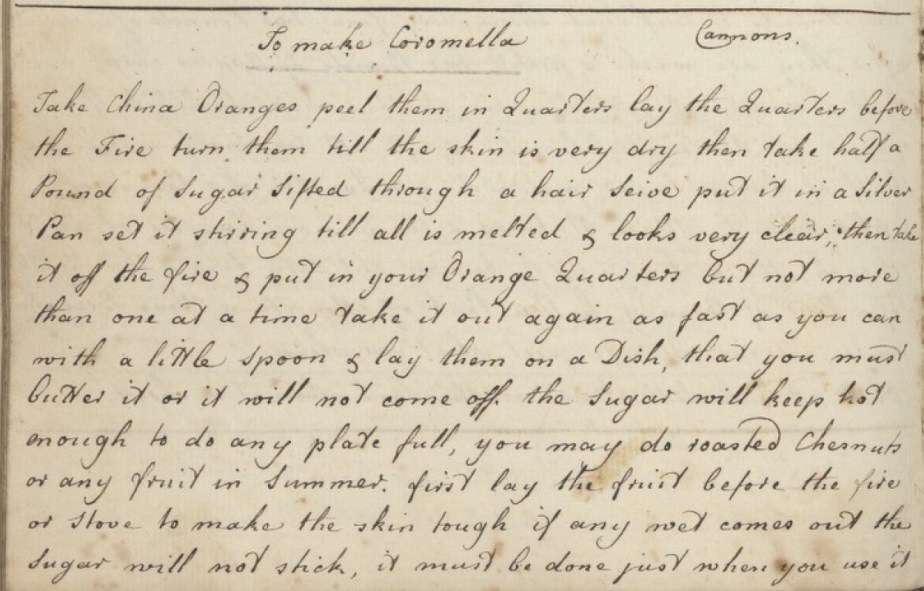 To make Coromella Cannons.
Take China Oranges peel them in Quarters lay the Quarters before
the Fire turn them till the skin is very dry then take half a
Pound of Sugar Sifted through a hair Seive put it in a Silver
Pan set it stirring till all is melted & looks very clear, then take
it off the fire & put in your Orange Quarters but not more
than one at a time take it out again as fast as you can
with a little spoon & lay them on a Dish, that you must
butter it or it will not come off. the Sugar will keep hot
enough to do any plate full, you may do roasted Chesnuts
or any fruit in Summer. first lay the fruit before the fire
or stove to make the skin tough if any wet comes out the
Sugar will not stick, it must be done just when you use it